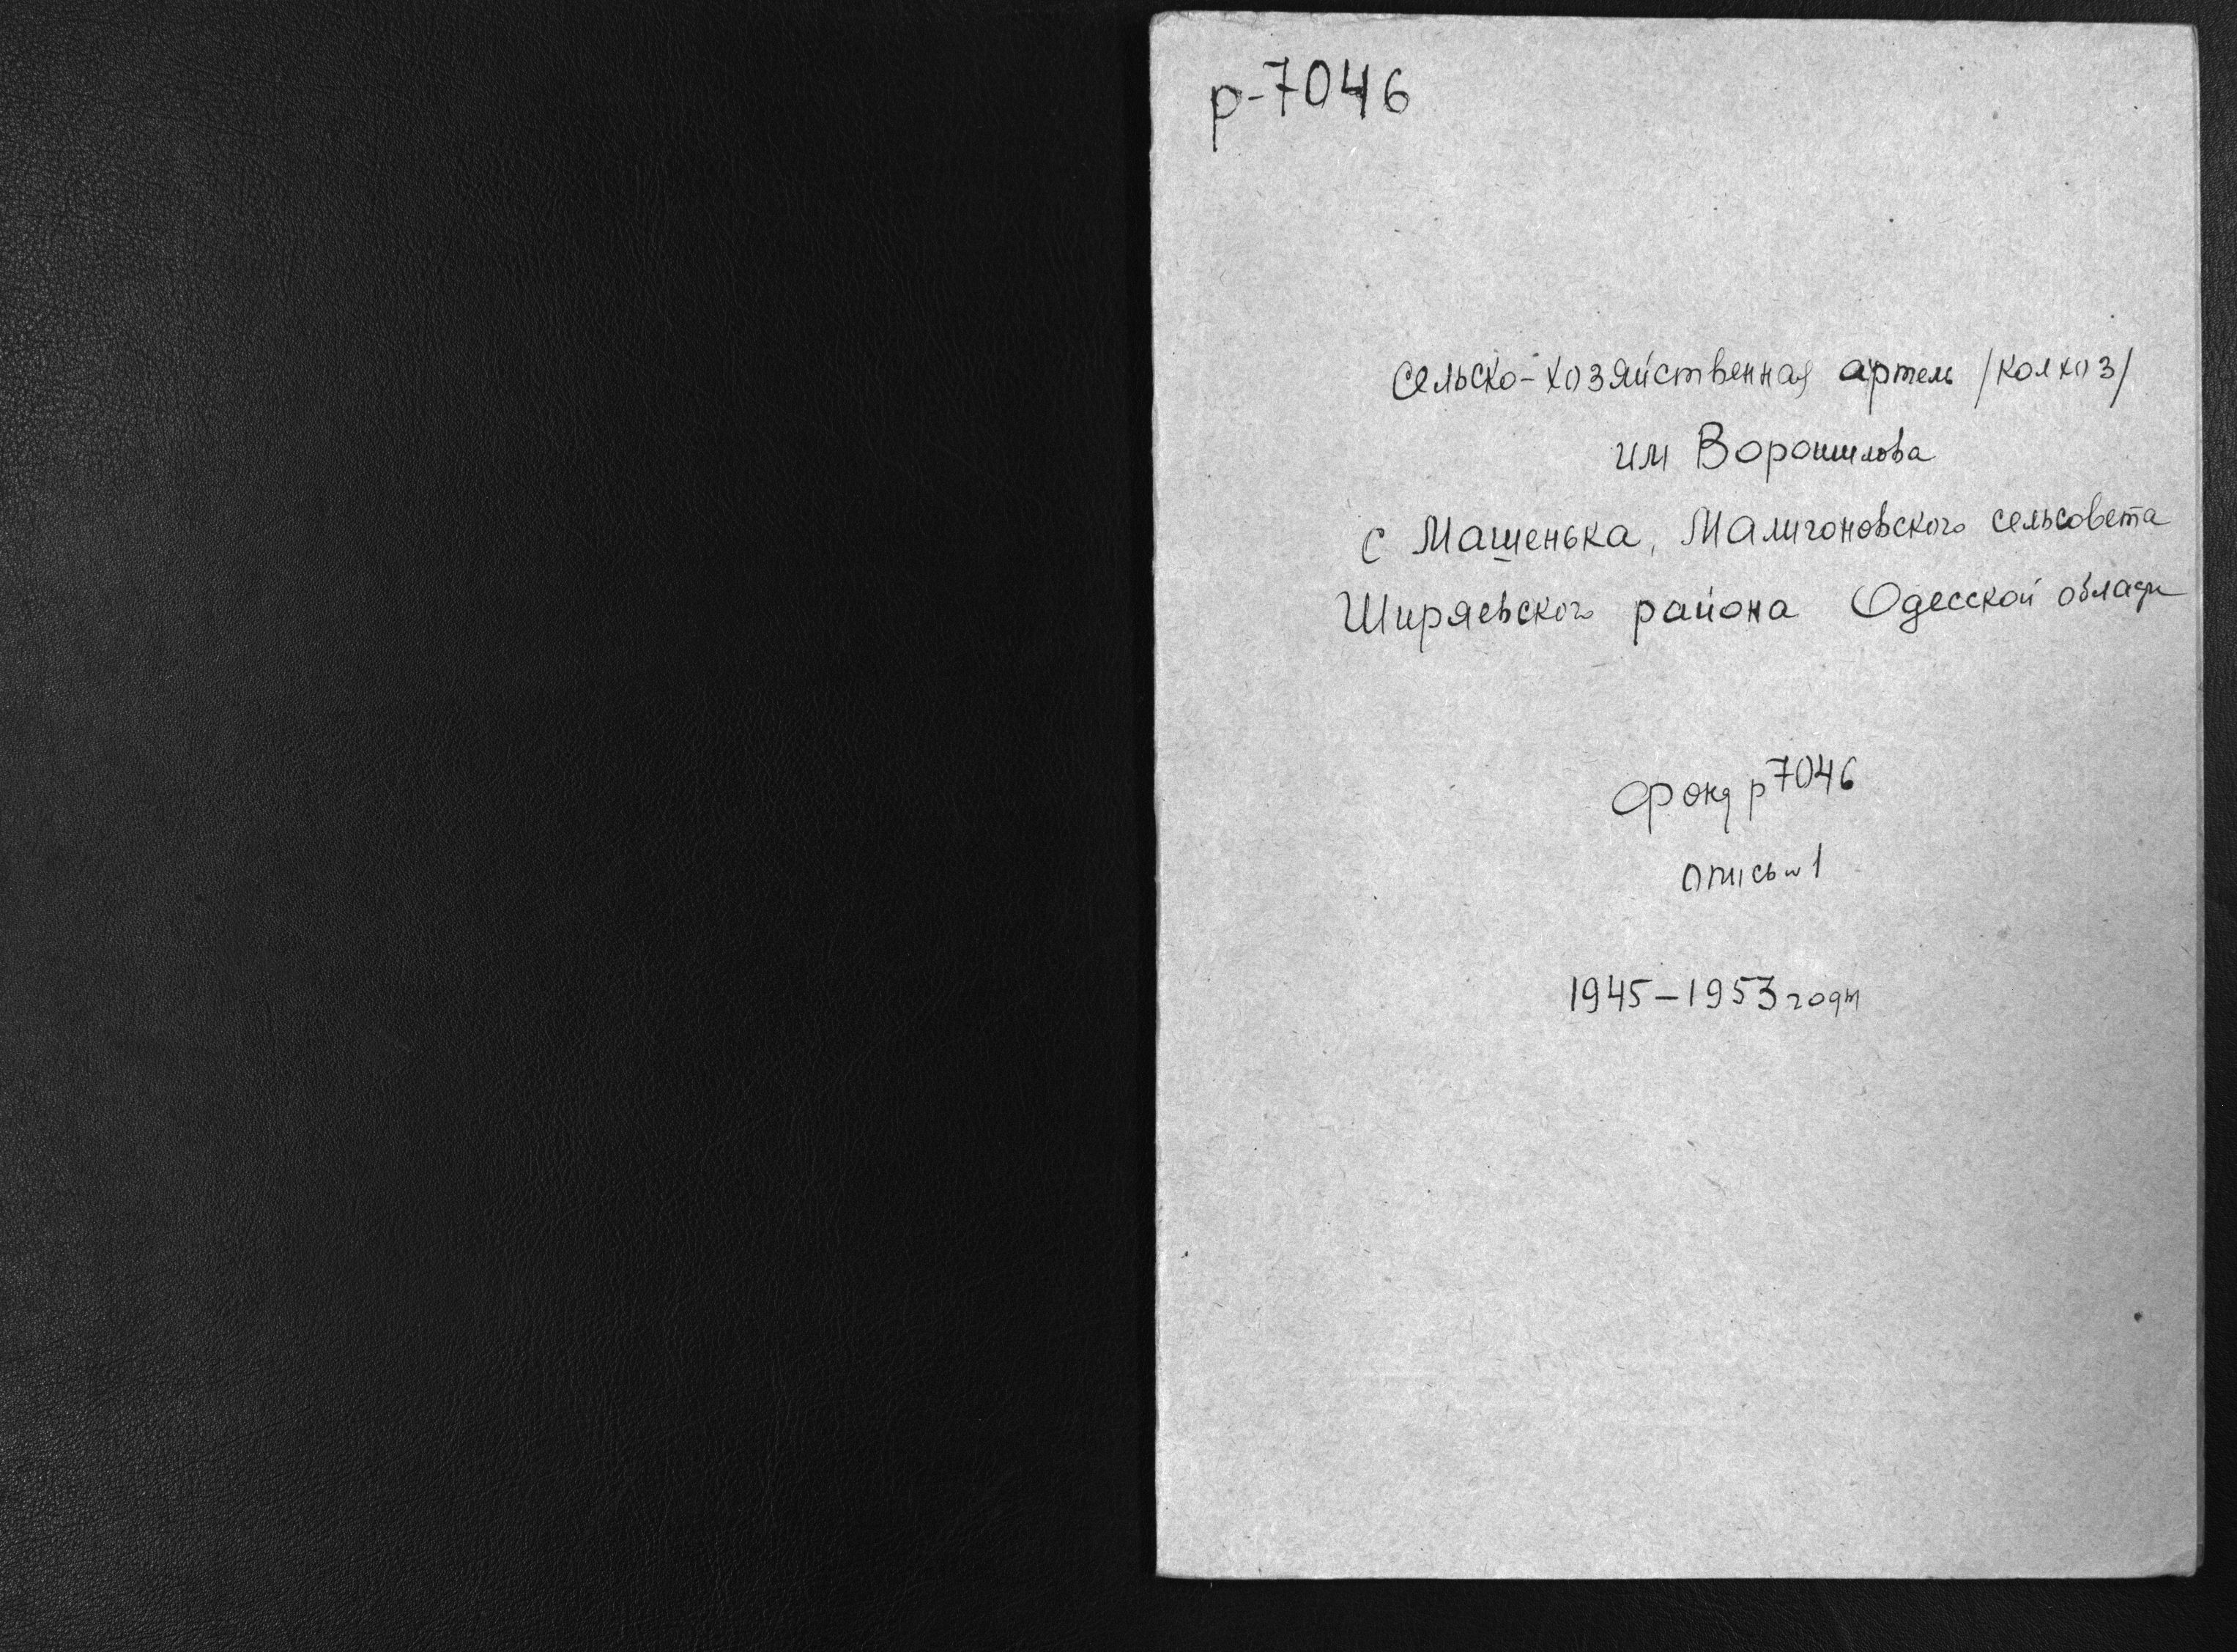 р-7046
Сельско-хозяйственная артель /колхоз/
им Ворошилова
с Машенька, Малигоновского сельсовета
Ширяевского района Одесской
Фонд р7046
опись № 1
1945-1953 годы